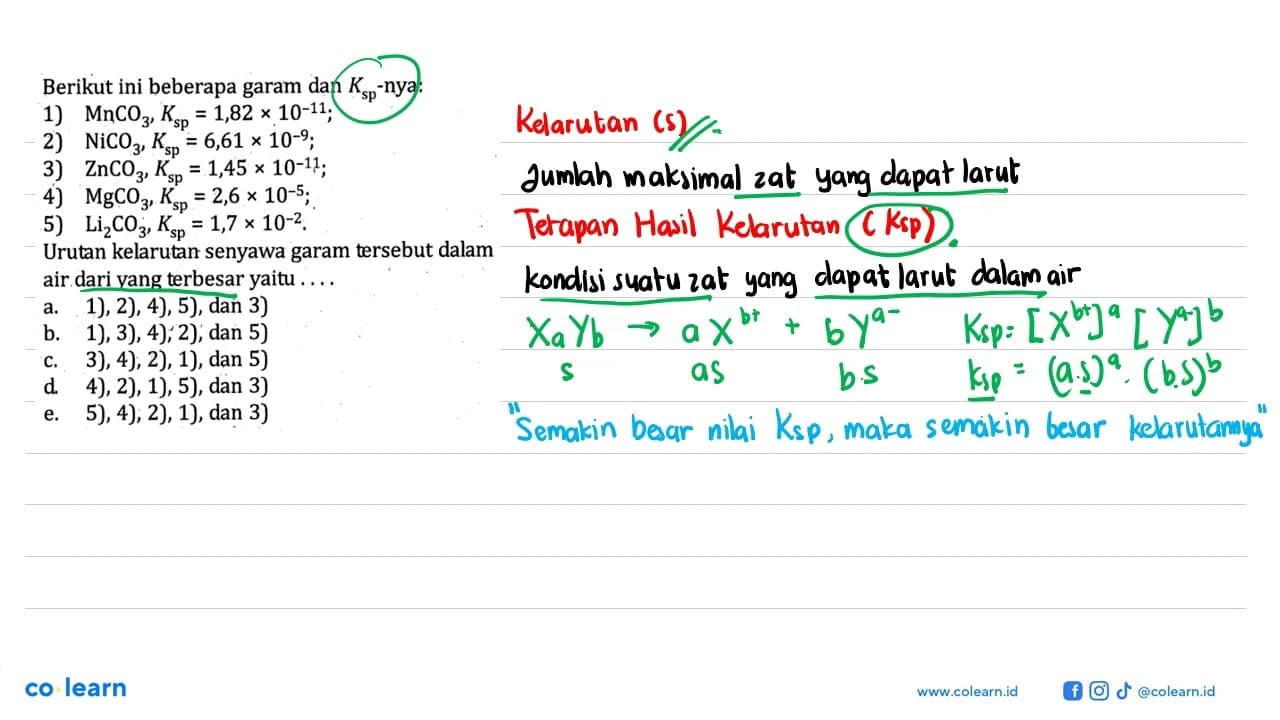 Berikut ini beberapa garam dan Ksp-nya:
1) MnCO₃, Ksp = 1,82 × 10⁻¹¹;
2) NiCO₃, Ksp = 6,61 × 10⁻⁹;
3) ZnCO₃, Ksp = 1,45 × 10⁻¹¹;
4) MgCO₃, Ksp = 2,6 × 10⁻⁵;
5) Li₂CO₃, Ksp = 1,7 × 10⁻².
Urutan kelarutan senyawa garam tersebut dalam
air dari yang terbesar yaitu . . . .
a. 1), 2), 4), 5), dan 3)
b. 1), 3), 4), 2), dan 5)
c. 3), 4), 2), 1), dan 5)
d. 4), 2), 1), 5), dan 3)
e. 5), 4), 2), 1), dan 3)
Kelarutan (s)
Jumlah maksimal zat yang dapat larut
Tetapan Hasil Kelarutan (Ksp)
kondisi suatu zat yang dapat larut dalam air
XaYb → aX^b+ + bY^a- Ksp = [X^b+]^a [Y^a-]^b
s as b.s ksp = (a.s)^a . (b.s)^b
"Semakin besar nilai Ksp, maka semakin besar kelarutannya"
co learn
www.colearn.id
@colearn.id